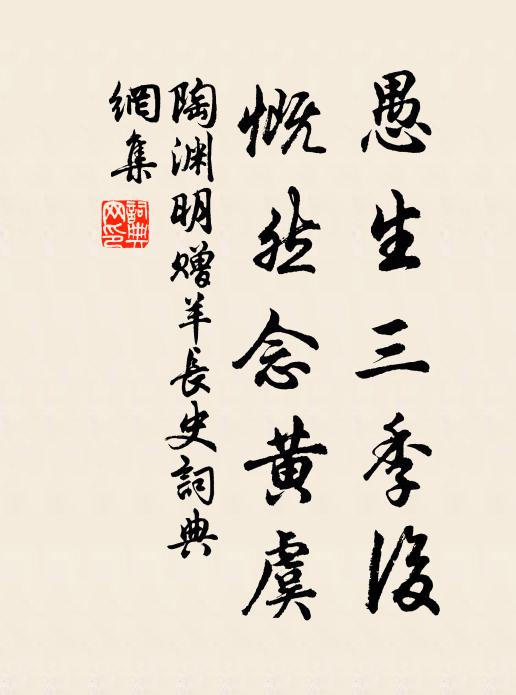 愚生三季後
慨然念黃虞
陶渊明赠羊長史詞典
網集
詞典
网印